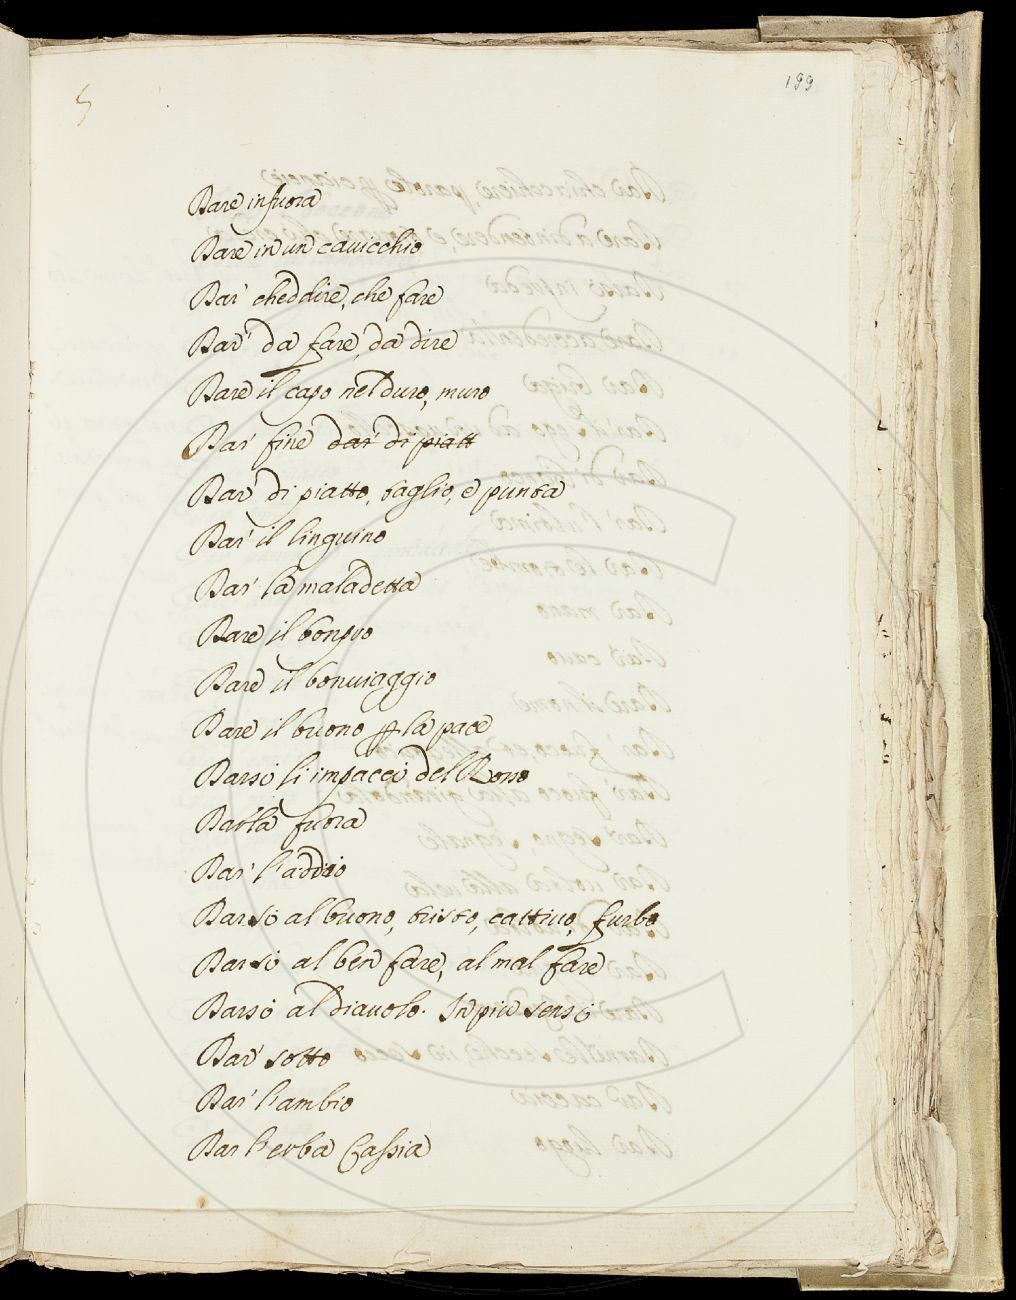 199
Dare in fuora
Dare in un cavicchio
Dar' cheddire, che fare
Dar' da fare, da dire
Dare il capo nel duro, muro
Dar' fine dar' di piatt
Dar' di piatto, taglio, e punta
Dar' il linguino
Dar' la maladetta
Dare il bonprò
Dare il bonviaggio
Dare il buono p la pace
Darsi li impacci del Rosso
Darla fuora
Dar' l'addio
Darsi al buono, tristo, cattivo, furbo
Darsi al ben fare, al mal fare
Darsi al diavolo. In più sensi
Dar' sotto
Dar' l'ambio
Dar l'erba Cassia